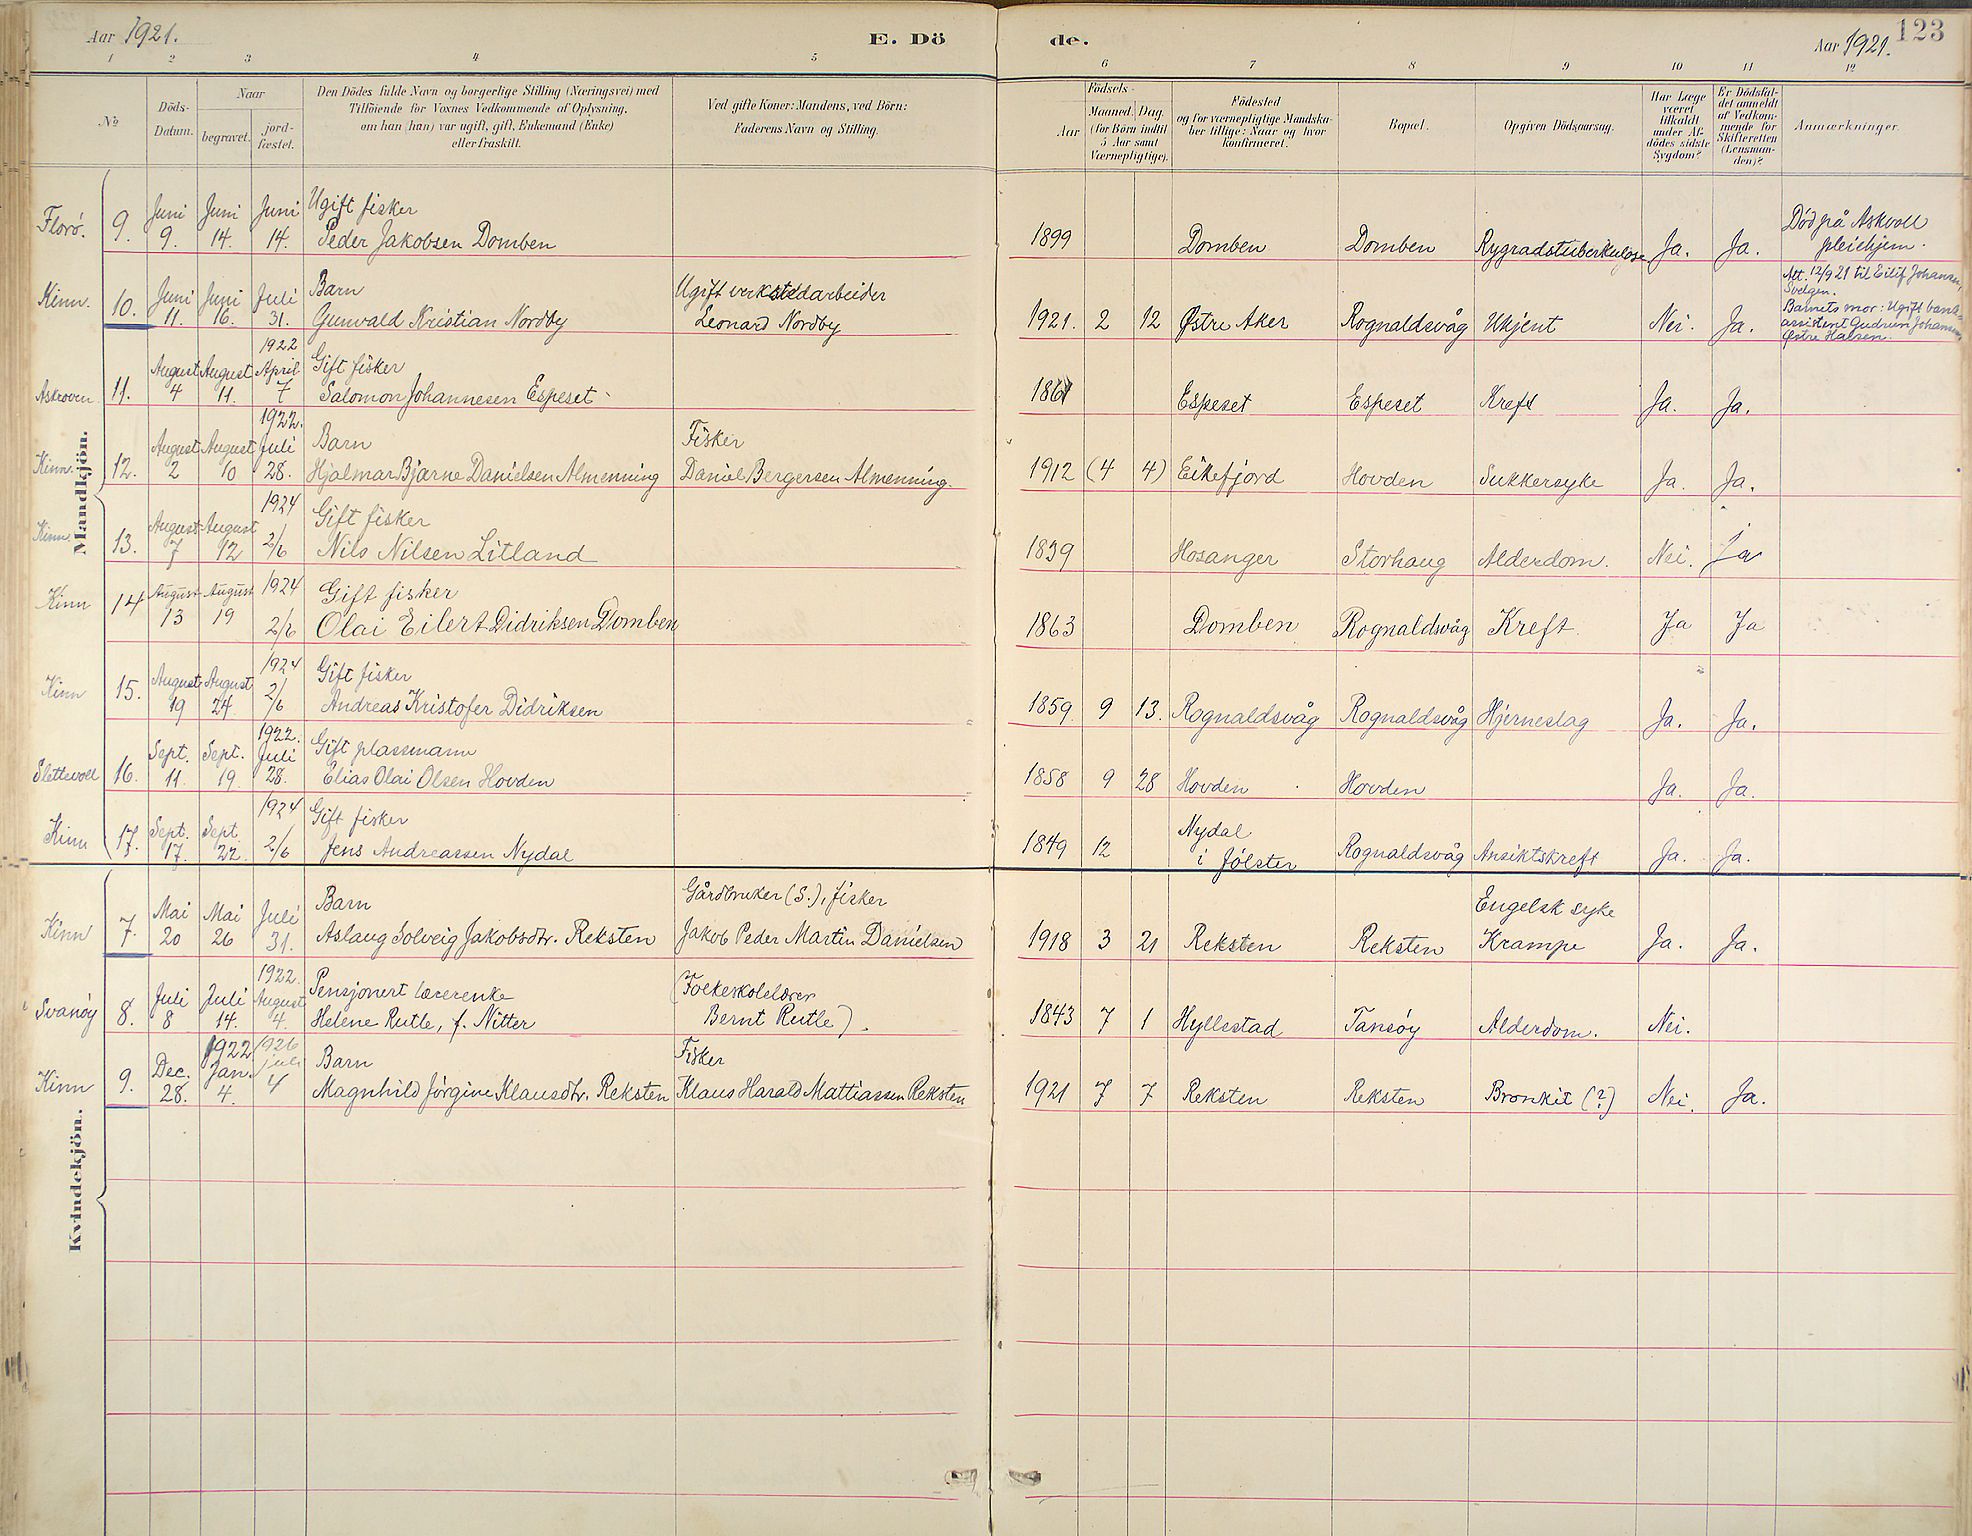 Aar 1921.
E. Dö
de.
Aar 1921.
123
1 2 3 4 5 6 7 8 9 10 11 12
No
Döds-
Datum.
Naar
begravet.
jord-
fæstet.
Den Dödes fulde Navn og borgerlige Stilling (Næringsvei) med
Tilföiende for Voxnes Vedkommende af Oplysning,
om han (hun) var ugift, gift, Enkemand (Enke)
eller fraskilt.
Ved gifte Koner: Mandens, ved Börn:
Faderens Navn og Stilling.
Födsels-
Aar
Maaned. Dag.
(for Börn indtil
5 Aar samt
Værnepligtige).
Födested
og for værnepligtige Mandska-
ber tillige: Naar og hvor
konfirmeret.
Bopæl.
Opgiven Dödsaarsag.
Har Læge
været
tilkaldt
under Af-
dödes sidste
Sygdom?
Er Dödsfal-
det anmeldt
af Vedkom-
mende for
Skifteretten
(Lensman-
den)?
Anmærkninger.
Mandkjön.
Florö. 9. Juni 9. Juni 14. Juni 14. Ugift fisker
Peder Jakobsen Domben 1899 Domben Domben Rygradstuberkulose Ja. Ja. Död på Askvoll
pleiehjem.
Kinn. 10. Juni 11. Juni 16. Juli 31. Barn
Gunvald Kristian Nordby Ugift verkstedarbeider
Leonard Nordby 1921. 2 12 Østre Aker Rognaldsvåg Ukjent Nei. Ja. Att. 12/9 21 til Eilif Johansen,
Svelgen.
Barnets mor: Ugift bank-
assistent Gudrun Johansen,
Østre Halsen.
Askroven. 11. August 4 August 11. 1922 April 7 Gift fisker
Salomon Johannesen Espeset 1861 Espeset Espeset Kreft Ja. Ja.
Kinn. 12. August 2 August 10 1922. Juli 28. Barn
Hjalmar Bjarne Danielsen Almenning Fisker
Daniel Bergersen Almenning. 1912 (4 4) Eikefjord Hovden Sukkersyke Ja. Ja.
Kinn. 13. August 7 August 12 1924 2/6 Gift fisker
Nils Nilsen Litland 1839 Hosanger Storhaug Alderdom. Nei. Ja
Kinn 14 August 13 August 19 1924 2/6 Gift fisker
Olai Eilert Didriksen Domben 1863 Domben Rognaldsvåg Kreft. Ja Ja
Kinn 15. August 19 August 24. 1924 2/6 Gift fisker
Andreas Kristofer Didriksen 1859. 9 13. Rognaldsvåg Rognaldsvåg Hjerneslag Ja. Ja.
Slettevoll 16. Sept. 11. Sept. 19. 1922. Juli 28. Gift plassmann
Elias Olai Olsen Hovden 1858 9 28 Hovden Hovden Ja. Ja.
Kinn 17. Sept. 17. Sept. 22. 1924 2/6 Gift fisker
Jens Andreassen Nydal 1849 12 Nydal
i Jölster Rognaldsvåg Ansiktskreft Ja. Ja.
Kvindekjön.
Kinn 7. Mai 20 Mai 26 Juli 31. Barn
Aslaug Solveig Jakobsdtr. Reksten Gårdbruker (S.), fisker
Jakob Peder Martin Danielsen 1918 3 21 Reksten Reksten Engelsk syke
Krampe Ja. Ja.
Svanöy 8. Juli 8 Juli 14. 1922. August 4. Pensjonert lærerenke
Helene Rutle, f. Nitter (Folkeskolelærer
Bernt Rutle). 1843 7 1 Hyllestad Tansöy Alderdom. Nei.
Kinn 9. Dec. 28. 1922 Jan. 4. 1926 juli 4 Barn
Magnhild Jörgine Klausdtr. Reksten Fisker
Klaus Harald Mattiassen Reksten 1921 7 7 Reksten Reksten Bronkit (?) Nei. Ja.